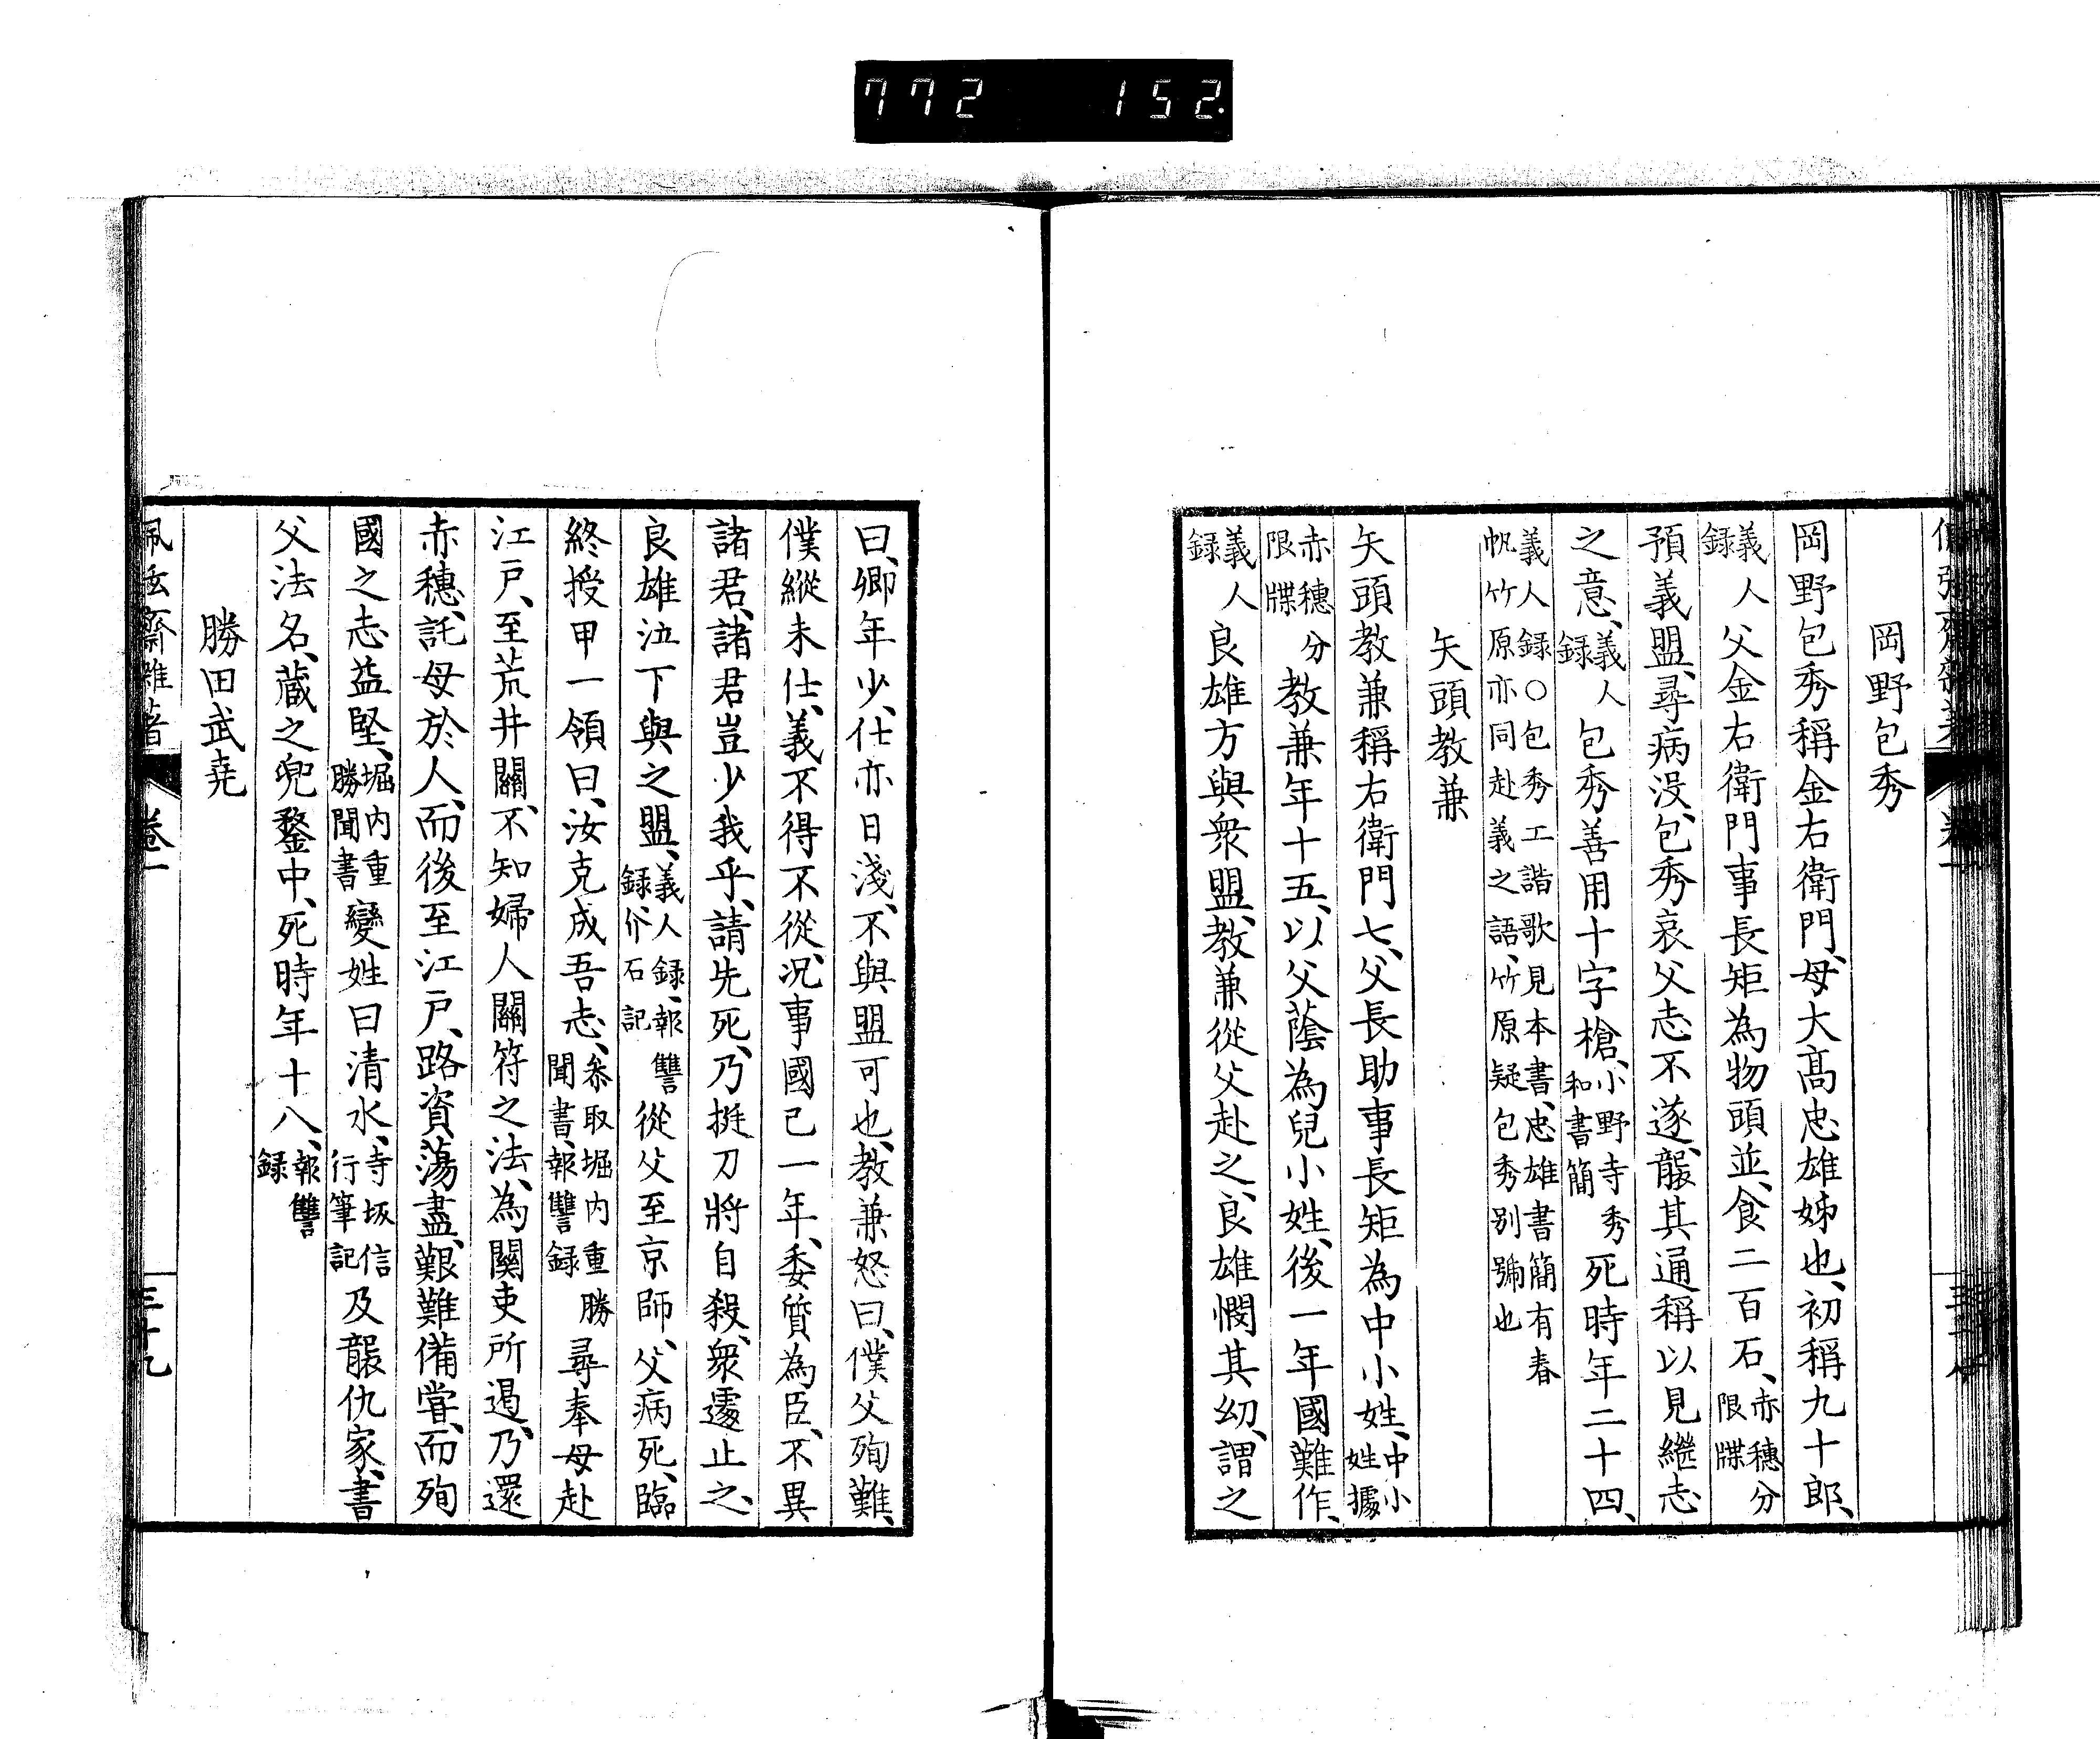 772 152.
岡野包秀
岡野包秀稱金右衛門、母大髙忠雄姊也、初稱九十郎、
義人録父金右衛門事長矩為物頭並、食二百石、赤穗分限牒
預義盟、尋病没、包秀哀父志不遂、襲其通稱以見繼志
之意、義人録包秀善用十字槍、小野寺秀和書簡死時年二十四、
義人録○包秀工諧歌見本書、忠雄書簡有春
帆竹原亦同赴義之語、竹原疑包秀別號也
矢頭教兼
矢頭教兼稱右衛門七、父長助事長矩為中小姓、中小姓據
赤穗分限牒教兼年十五、以父蔭為兒小姓、後一年國難作、
義人録良雄方與衆盟、教兼從父赴之、良雄憫其幼、謂之
曰、卿年少、仕亦日淺、不與盟可也、教兼怒曰、僕父殉難、
僕縱未仕、義不得不從、況事國已一年、委質為臣、不異
諸君、諸君豈少我乎、請先死、乃挺刀將自殺、衆遽止之、
良雄泣下與之盟、義人録、報讐録、介石記從父至京師、父病死、臨
終授甲一領曰、汝克成吾志、叅取堀内重勝聞書、報讐録尋奉母赴
江戸、至荒井關、不知婦人關符之法、為關吏所遏、乃還
赤穗、託母於人、而後至江戸、路資蕩盡、艱難備嘗、而殉
國之志益堅、堀内重勝聞書變姓曰清水、寺坂信行筆記及襲仇家、書
父法名、蔵之兜鍪中、死時年十八、報讐録
勝田武堯
齋雜著 卷一 三十九